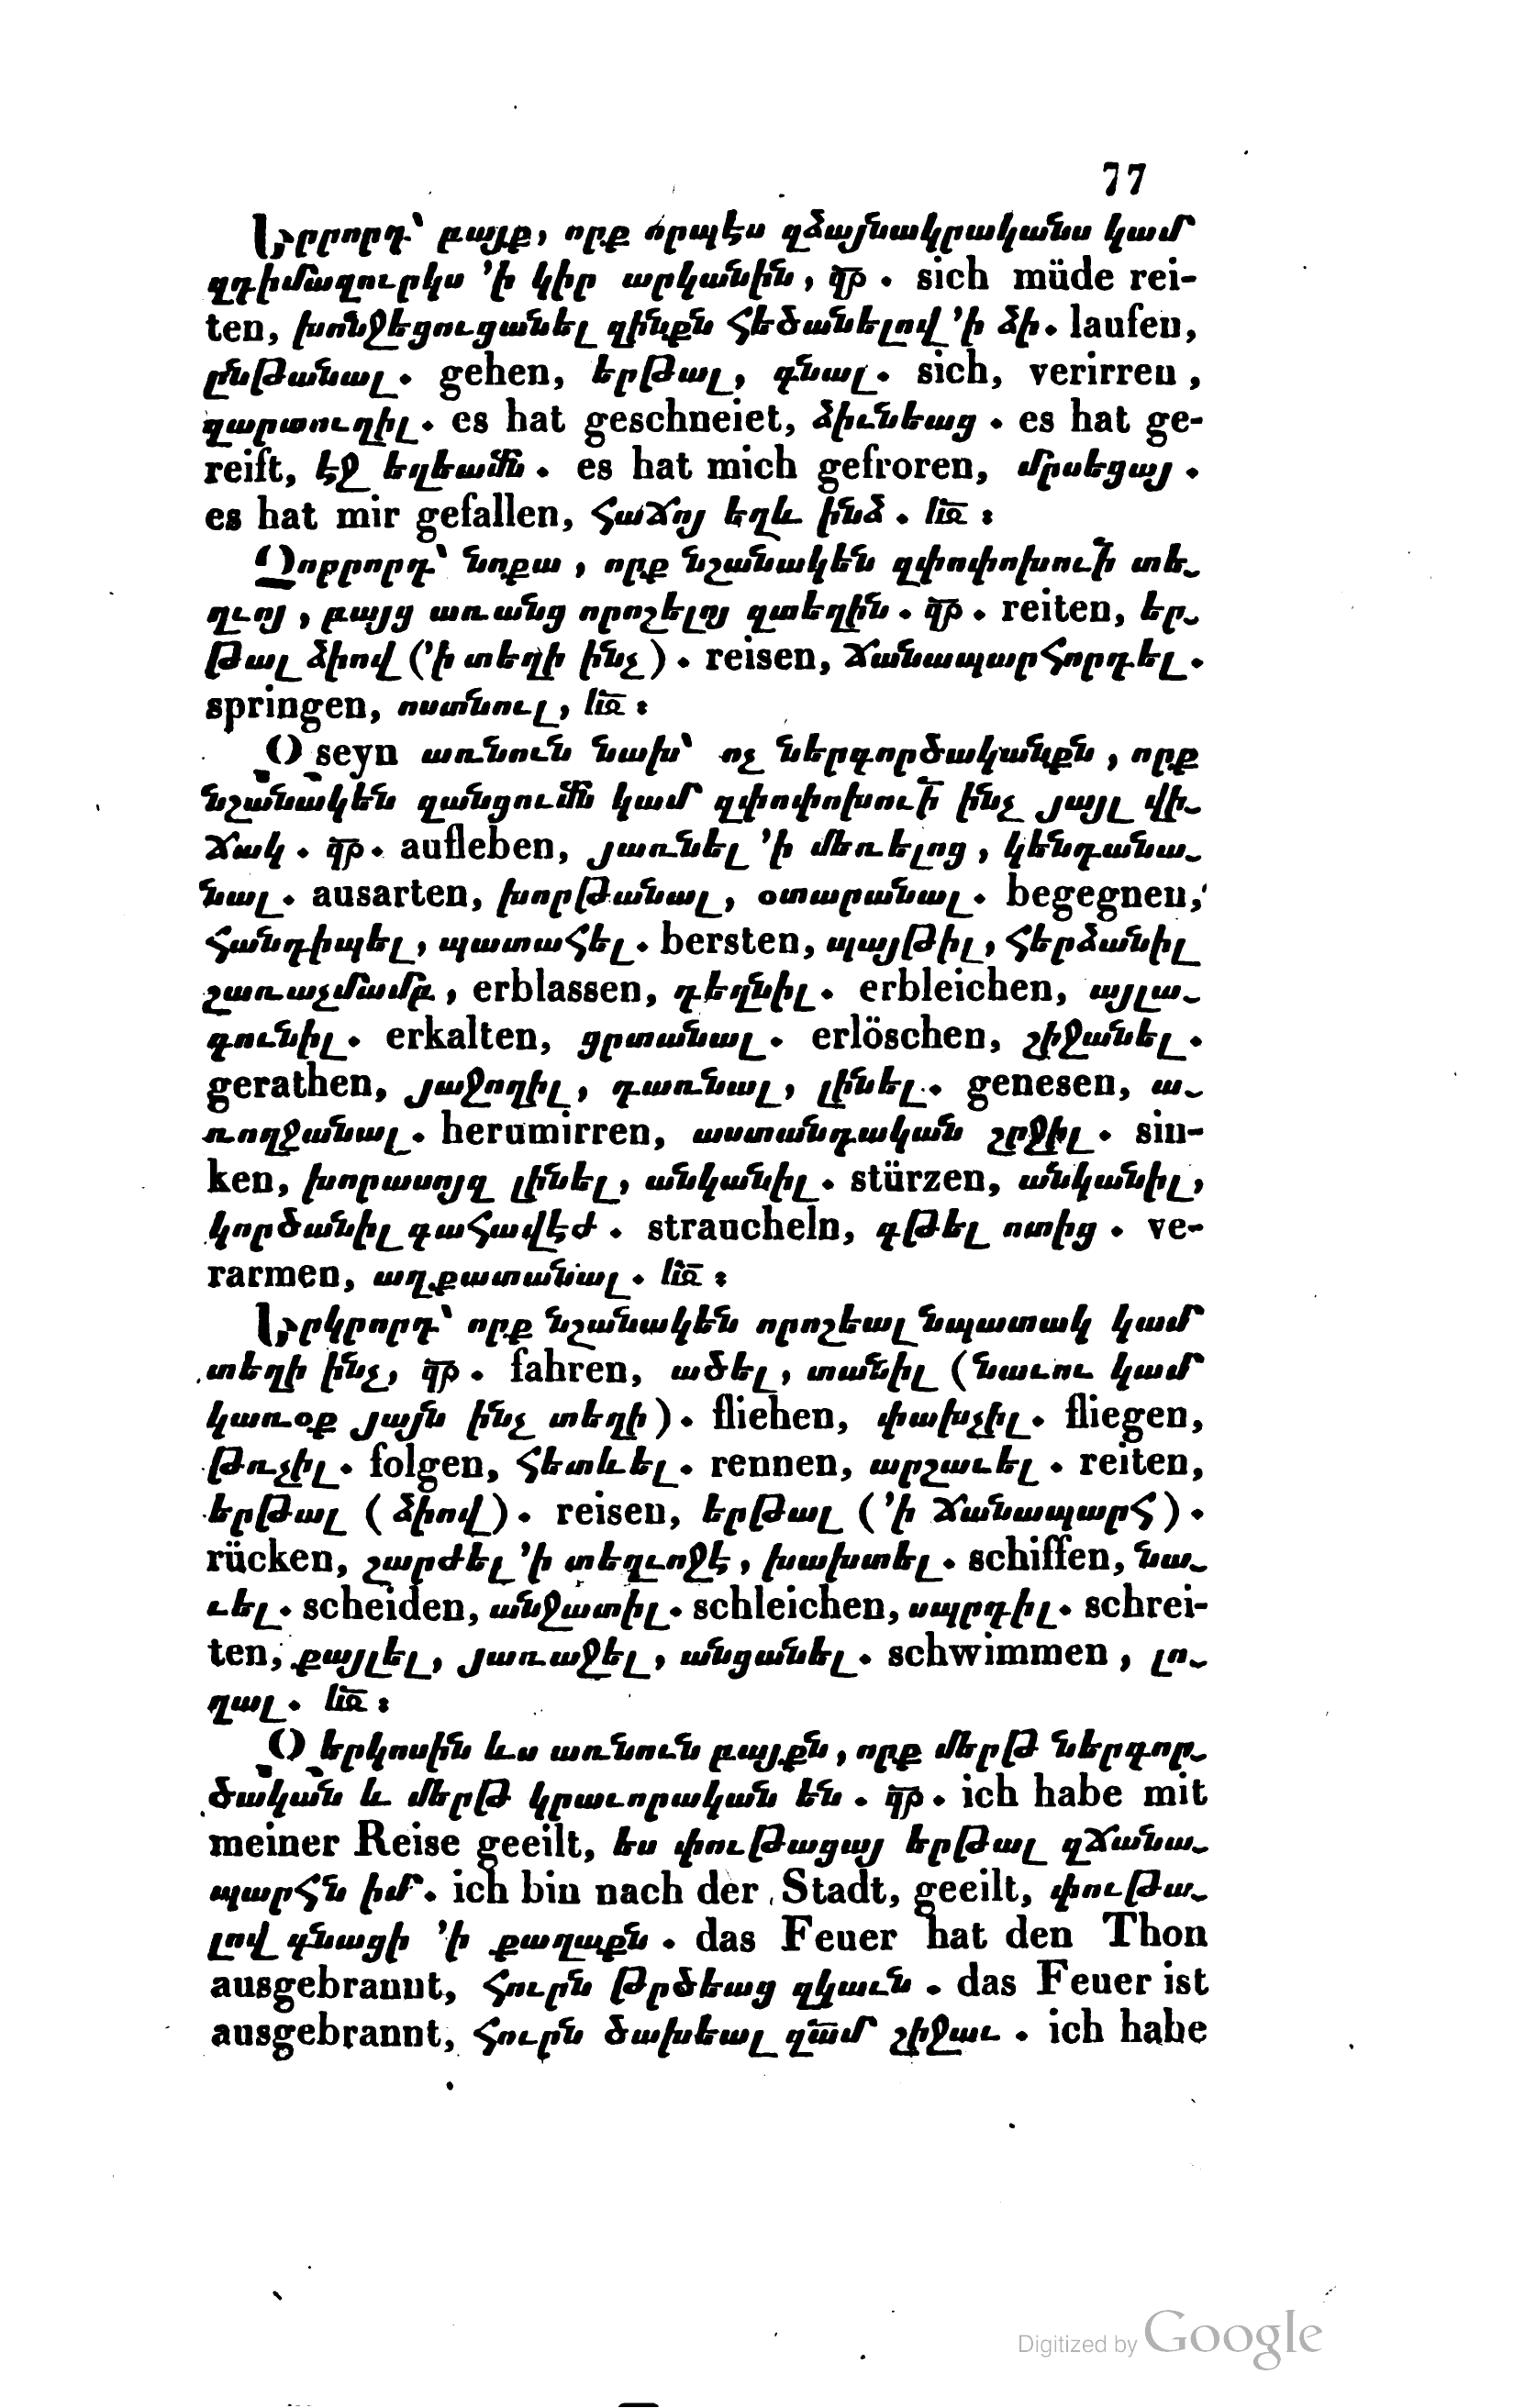 77
Երրորդ՝ բայք, որք որպէս զձայնակրականս կամ
զդիմազուրկս ՚ի կիր արկանին, զր. sich müde rei-
ten, խոնջեցուցանել զինքն հեծանելով ՚ի ձի. laufen,
ընթանալ. gehen, երթալ, գնալ. sich, verirren,
զարտուղիլ. es hat geschneiet, ձիւնեաց. es hat ge-
reift, էջ եղեամն. es hat mich gefroren, մրսեցայ.
es hat mir gefallen, հաճոյ եղև ինձ. ևն։
Չորրորդ՝ նոքա, որք նշանակեն զփոփոխուի տե-
ղւոյ, բայց առանց որոշելոյ զտեղին. զր. reiten, եր-
թալ ձիով (՚ի տեղի ինչ). reisen, ճանապարհորդել.
springen, ոստնուլ, ևն։
Զseyn առնուն նախ՝ ոչ ներգործականքն, որք
նշանակեն զանցումն կամ զփոփոխուի ինչ յայլ վի-
ճակ. զր. aufleben, յառնել ՚ի մեռելոց, կենդանա-
նալ. ausarten, խորթանալ, օտարանալ. begegnen,
հանդիպել, պատահել. bersten, պայթիլ, հերձանիլ
շառաչմամբ, erblassen, դեղնիլ. erbleichen, այլա-
գունիլ. erkalten, ցրտանալ. erlöschen, շիջանել.
gerathen, յաջողիլ, դառնալ, լինել. genesen, ա-
ռողջանալ. herumirren, աստանդական շրջիլ. sin-
ken, խորասոյզ լինել, անկանիլ. stürzen, անկանիլ,
կործանիլ գահավէժ. straucheln, գթել ոտից. ve-
rarmen, աղքատանալ. ևն։
Երկրորդ՝ որք նշանակեն որոշեալ նպատակ կամ
տեղի ինչ, զր. fahren, ածել, տանիլ (նաւու կամ
կառօք յայն ինչ տեղի). fliehen, փախչիլ. fliegen,
թռչիլ. folgen, հետևել. rennen, արշաւել. reiten,
երթալ (ձիով). reisen, երթալ (՚ի ճանապարհ).
rücken, շարժել ՚ի տեղւոջէ, խախտել. schiffen, նա-
ւել. scheiden, անջատիլ. schleichen, սպրդիլ. schrei-
ten, քայլել, յառաջել, անցանել. schwimmen, լո-
ղալ. ևն։
Զերկոսին ևս առնուն բայքն, որք մերթ ներգոր-
ծական և մերթ կրաւորական են. զր. ich habe mit
meiner Reise geeilt, ես փութացայ երթալ զճանա-
պարհն իմ. ich bin nach der Stadt, geeilt, փութա-
լով գնացի ՚ի քաղաքն. das Feuer hat den Thon
ausgebrannt, հուրն թրծեաց զկաւն. das Feuer ist
ausgebrannt, հուրն ծախեալ զամ շիջաւ. ich habe
Digitized by Google